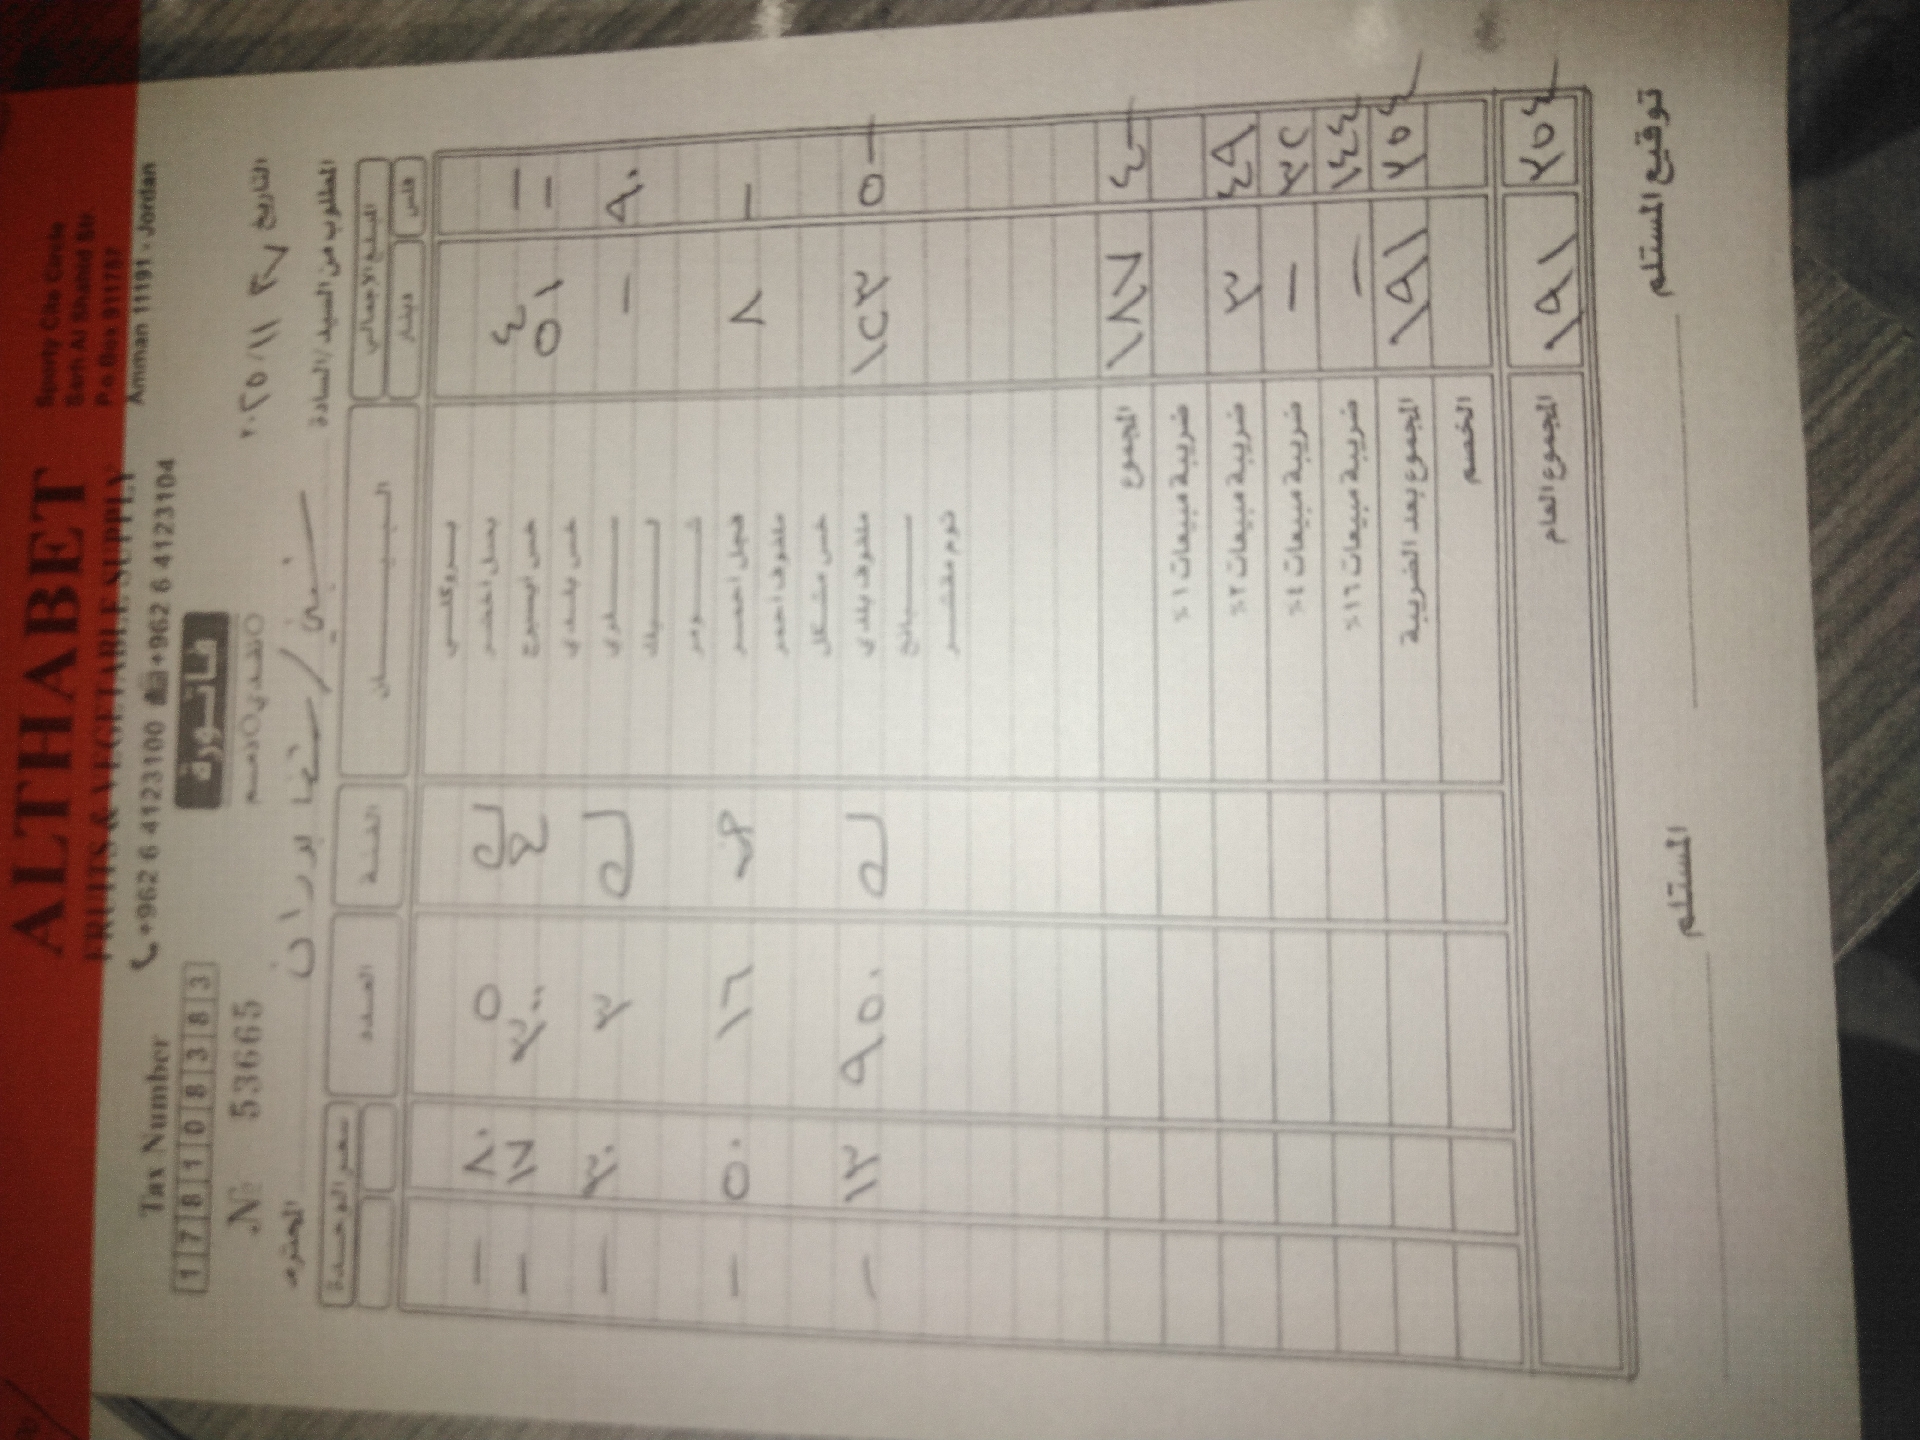 ALTHABET
FRUITS & VEGETABLE SUPPLY
Sporty Cite Circle
Sarh Al Shahid Str.
P.o Box 911757
Amman 11191 - Jordan
+962 6 4123100 +962 6 4123104
Tax Number
1 7 8 1 0 8 3 8 3
فاتورة
نقدي ذمم
№ 53665
التاريخ ٢٧ / ١١ / ٢٠٢٥
المطلوب من السيد / السادة
المحترم
المبلغ الاجمالي البيـــــان الفئة العدد سعر الوحدة
فلس دينار
بروكلي
— ٤ بصل اخضر ٥ ٨٠ —
— ٥١ خس ايسبرغ ٣٠٠ ١٧ —
خس بلدي
٩٠ — ٣ ٣٠ —
— ٨ فجل احمر ١٦ ٥٠ —
ملفوف احمر
خس مشكل
٥٠ ١٢٣ ملفوف بلدي ٩٥٠ ١٣ —
سبانخ
ثوم مقشر
٤٠ ١٨٧ المجموع
ضريبة مبيعات ١٪
٤٩ ٣ ضريبة مبيعات ٢٪
٣٢ — ضريبة مبيعات ٤٪
١٤٤ — ضريبة مبيعات ١٦٪
٢٥٤ ١٩١ المجموع بعد الضريبة
الخصم
٢٥٤ ١٩١ المجموع العام
توقيع المستلم المستلم